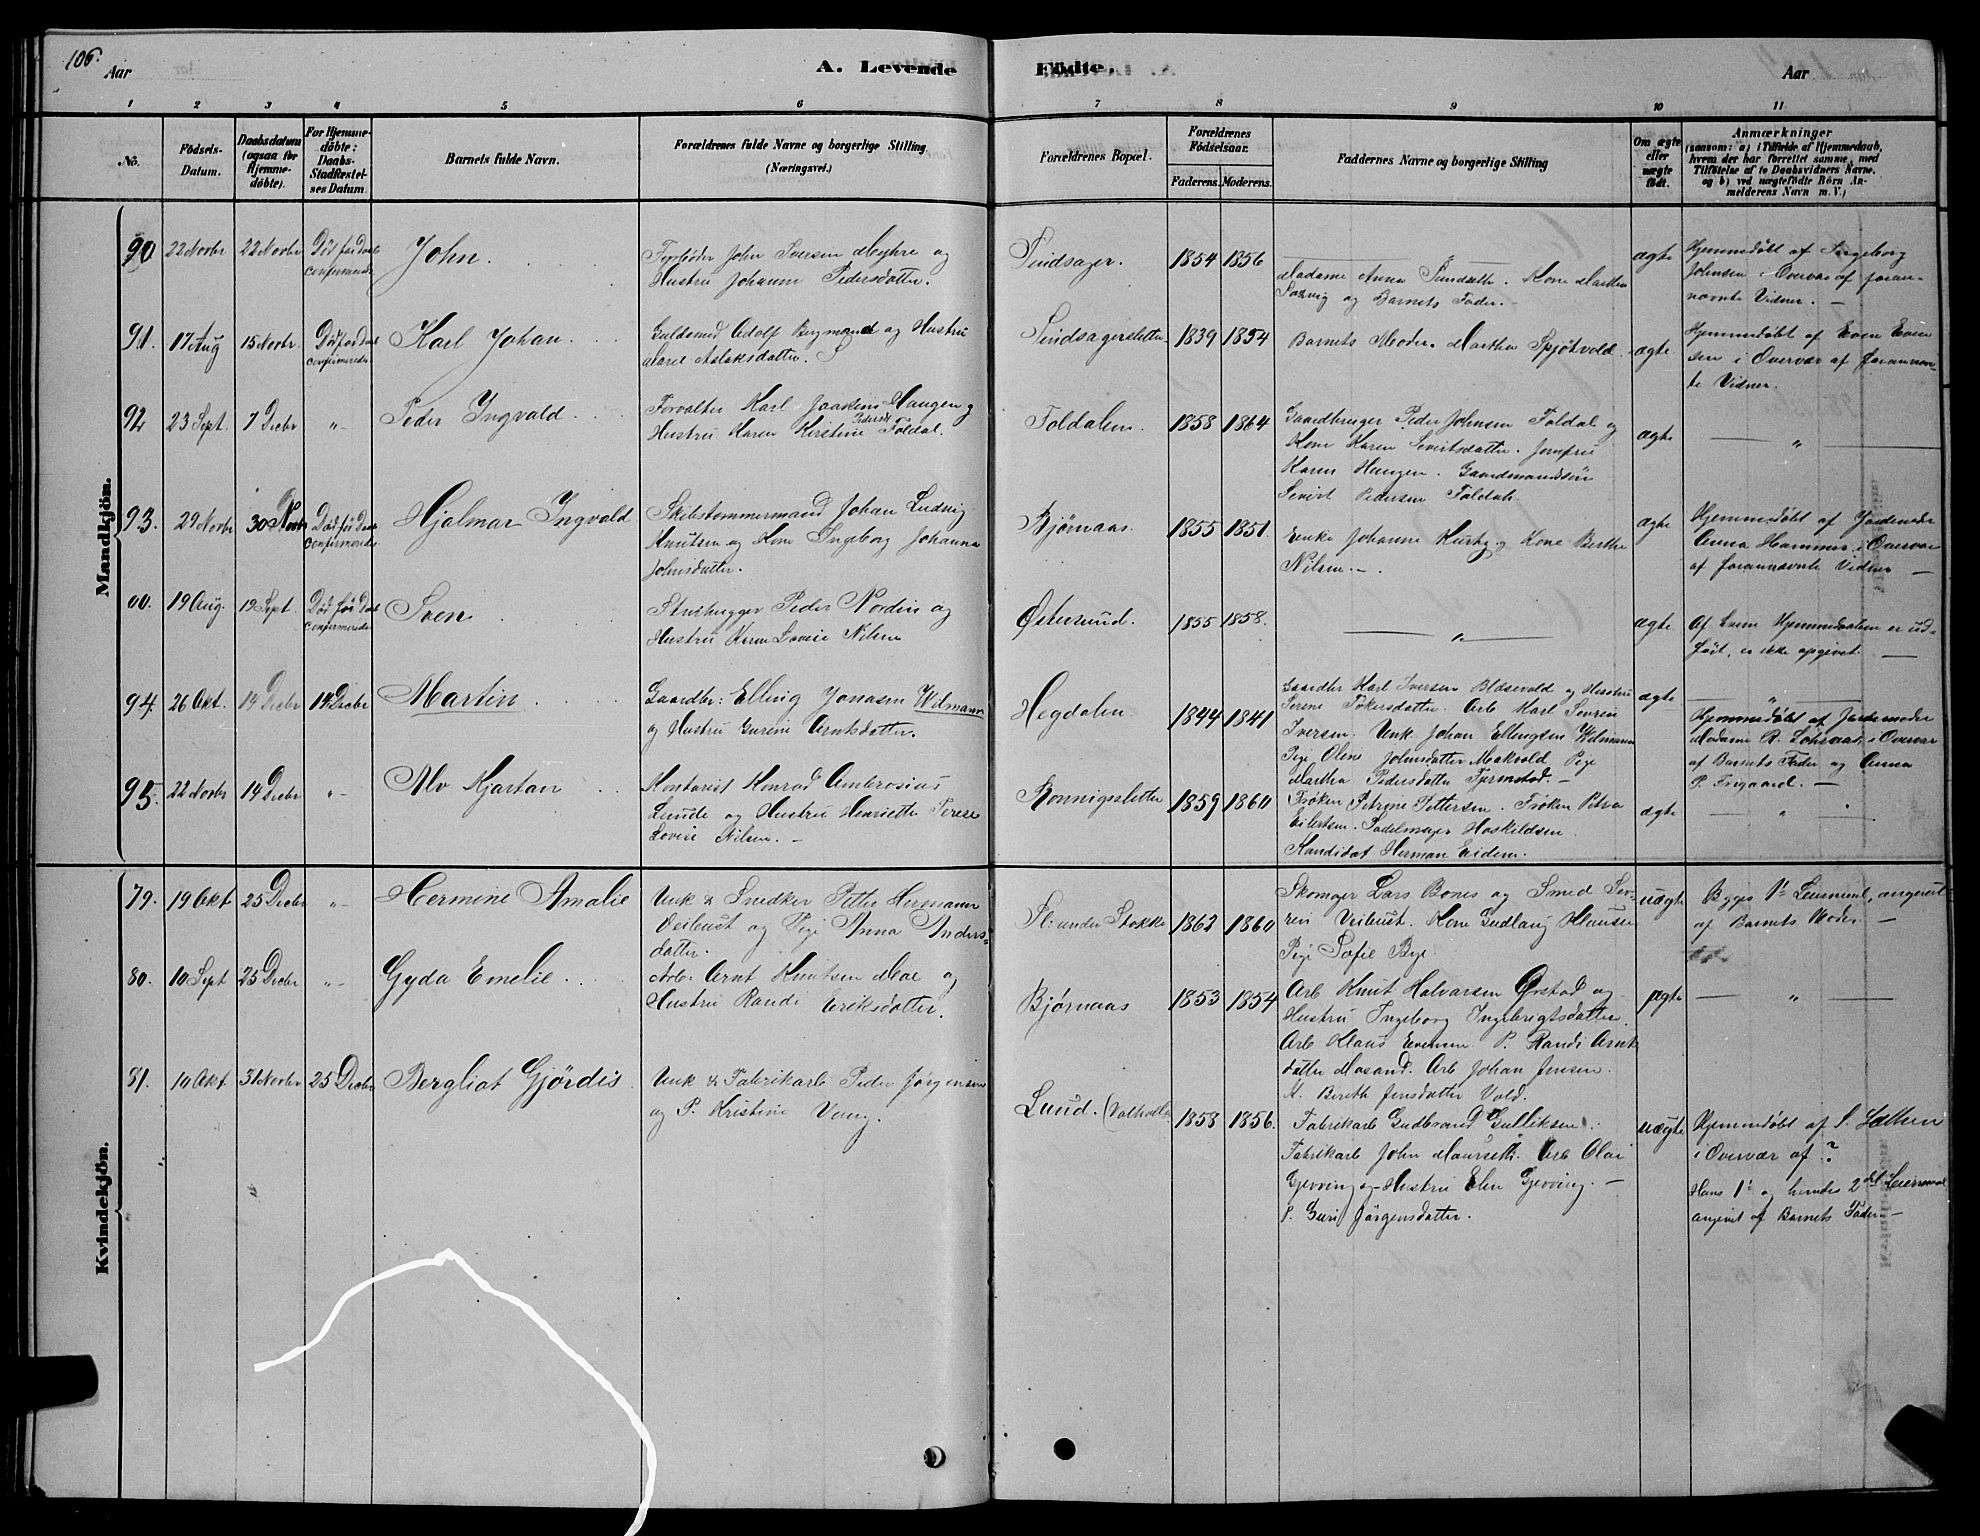 106.
Aar
A. Levende
Födte.
Aar
1 2 3 4 5 6 7 8 9 10 11
No.
Födsels-
Datum.
Daabsdatum
(ogsaa for
Hjemme-
döbte).
For Hjemme-
döbte:
Daabs-
Stadfæstel-
ses Datum.
Barnets fulde Navn.
Forældrenes fulde Navne og borgerlige Stilling
(Næringsvei.)
Forældrenes Bopæl.
Forældrenes
Födselsaar.
Faderens. Moderens.
Faddernes Navne og borgerlige Stilling
Om ægte
eller
uægte
födt.
Anmærkninger
(saasom: a) i Tilfælde af Hjemmedaab,
hvem der har forrettet samme, med
Tilföielse af to Daabsvidners Navne,
og b) ved uægtefödte Börn An-
melderens Navn m. V.)
Mandkjön.
90 22 Novbr 22 Novbr Död för Daab
John.
John Iversen Myhre og
Hustru Johanna Pedersdatter.
1854 1856
Madame Anna Kone Marthea
og Barnets Fader.
ægte
Hjemmedöbt af Ingeborg
Johnsen i Overvær af foran-
nævnte Vidner. —
91. 17 Aug 15 Novbr Död för Daab
Karl Johan.
Guldsmed Adolf Bergmand og Hustru
Maret Aslaksdatter.
1839 1854
Barnets Moder. Martha Spjötvold.
ægte
Hjemmedöbt af Even Even-
sen i Overvær af forannævn-
te Vidner.
92 23 Sept. 7 Decbr "
Peder Ingvald
Forvalter Karl Joakim Haugen og
Hustru Karen Kirstine Pedersdt Foldal.
Foldalen. 1858 1864
Gaardbruger Peder Johnsen Foldal og
Kone Karen Sivertsdatter. Jomfru
Karen Haugen. Gaardmandssön
Sivert Pedersen Foldal.
ægte
— " —
93. 29 Novbr 30 Novbr Död för Daab
Hjalmar Ingvald
Skibstömmermand Johan Ludvig
Knutsen og Kone Ingeborg Johanna
Johnsdatter.
Bjørnaas. 1855 1851.
Enke Johanne og Kone Berthe
Nilsen. —
ægte
Hjemmedöbt af Jordemoder
Anna Hammer i Overvær
af forannævnte Vidner —
00. 19 Aug. 19 Sept. Död för Daab
Sven
Peder Nordin og
Hustru Karen Lovise Nilsen
Østersund. 1855 1858.
— " —
ægte
Af hvem Hjemmedaaben er ud-
fört, er ikke opgivet. —
94. 26 Okt. 14 Decbr 14 Decbr
Martin
Gaardbr: Elling Jonasen Wilmann
og Hustru Gurine Arntsdatter.
Hegdalen 1844 1841
Gaardbr Karl Iversen Blæsevold og Hustru
Serine Tökersdatter. Arb Karl Sevrin
Iversen. Unk. Johan Ellingsen Wilmann
Pige Oline Johnsdatter Mækvold Pige
Martha Pedersdatter —
ægte
— " —
Hjemmedöbt af Jordemoder
Madame R. i Overvær
af Barnets Fader og Anna
P. —
95. 22 Novbr 14 Decbr "
Alv Kjartan
Kontorist Konrad Ambrosius
Lunde og Hustru Henriette Terese
Lovise Nilsen. —
1859 1860
Frøken Petrine Pettersen. Frøken Petra
Eilertsen. Sadelmager Haskildsen.
Kandidat Herman Eidem.
ægte
— " —
Kvindekjön.
79. 19 Okt 25 Decbr "
Hermine Amalie
Unk & Snedker Petter Hermann
Veibust og Pige Anna Anders-
datter.
Pl: under Stokke 1862 1860
Skomager Lars Bones og Smed Sev-
rin Veibust. Kone Gudlaug Klausen
Pige Sofie Bye.
uægte
Begges 1ste Leiermaal, angivet
af Barnets Moder —
80. 10 Sept 25 Decbr "
Gyda Emelie.
Arb. Arnt Knutsen Moe og
Hustru Randi Eriksdatter.
Bjørnaas 1853 1854
Arb Knut Halvarsen Grstad og
Hustru Ingeborg Ingebrigtsdatter.
Arb Klaus Evensen. P. Randi Arnt-
datter Mosand. Arb Johan Jensen.
H. Bereth Jensdatter Vold.
ægte
— " —
81. 10 Okt 31 Novbr 25 Decbr
Bergliot Gjördis.
Unk & Fabrikarb Peder Jörgensen
og P. Kristine Vang.
Lund. 1858 1856.
Fabrikarb Gudbrand Gulliksen.
Fabrikarb John Maurseth. Arb Olai
Gjevving og Hustru Elen Gjevving. —
P. Guri Jörgensdatter.
uægte
Hjemmedöbt af S. Sæther
i Overvær af ?
Hans 1ste og hendes 2det Leiermaal
angivet af Barnets Fader —